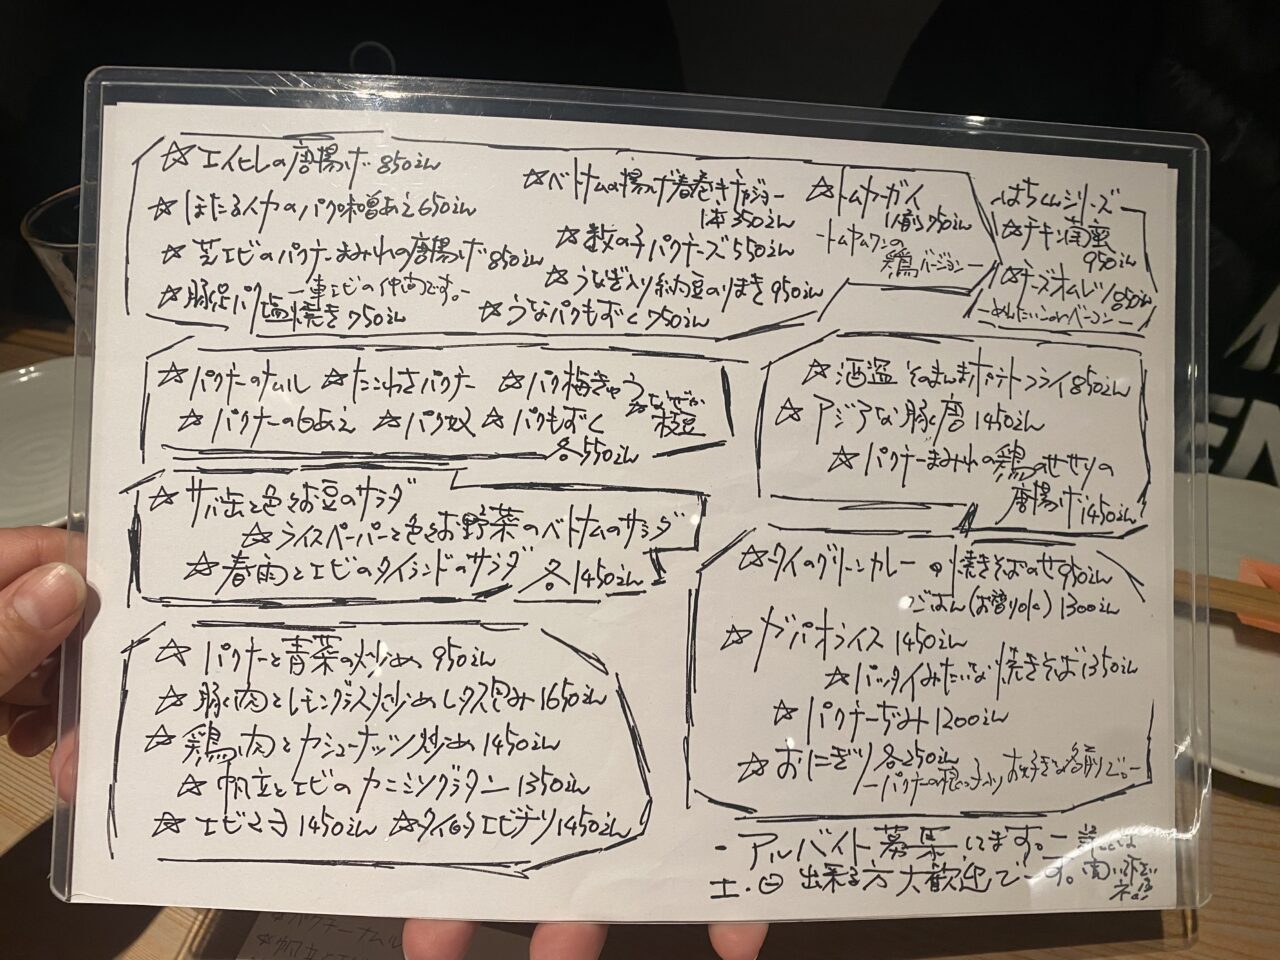 ☆エイヒレの唐揚げ 850えん
☆ほたるイカのパク味噌あえ 650えん
☆芝エビのパクチーまみれの唐揚げ 850えん
-車エビの仲間です。-
☆豚足パク塩焼き 750えん
☆ベトナムの揚げ春巻きチャジョー
1本350えん
☆数の子パクチーズ 550えん
☆うなぎ入り納豆のりまき 950えん
☆うなパクもずく 750えん
☆トムヤーガイ
1人前750えん
-トムヤムクンの
鶏バージョン-
はちくんシリーズ
☆チキン南蛮
950えん
☆チーズオムレツ 850えん
-めんたいこorベーコン-
☆パクチーのナムル ☆たこわさパクチー ☆パク梅きゅう
☆パクチーの白あえ ☆パク奴 ☆パクもずく
枝豆
各550えん
☆酒盗 そのまんまポテトフライ 850えん
☆アジアな豚唐 1450えん
☆パクチーまみれの鶏のせせりの
唐揚げ 1450えん
☆サバ缶と色々お豆のサラダ
☆ライスペーパーと色々お野菜のベトナムのサラダ
☆春雨とエビのタイランドのサラダ 各1450えん
☆パクチーと青菜の炒め 950えん
☆豚肉とレモングラス炒めレタス包み 1650えん
☆鶏肉とカシューナッツ炒め 1450えん
☆帆立とエビのカニミソグラタン 1350えん
☆エビマヨ 1450えん ☆タイ的エビチリ 1450えん
☆タイのグリーンカレー 焼きそばのせ 950えん
ごはん(お替りOK) 1300えん
☆ガパオライス 1450えん
☆パッタイみたいな焼きそば 1350えん
☆パクチーぢみ 1200えん
☆おにぎり 各250えん
-パクチーの根っ子入り お好きな名前でo-
・アルバイト募集してます。詳しくは
土・日出来る方大歓迎です。聞いて下さい
ネ!